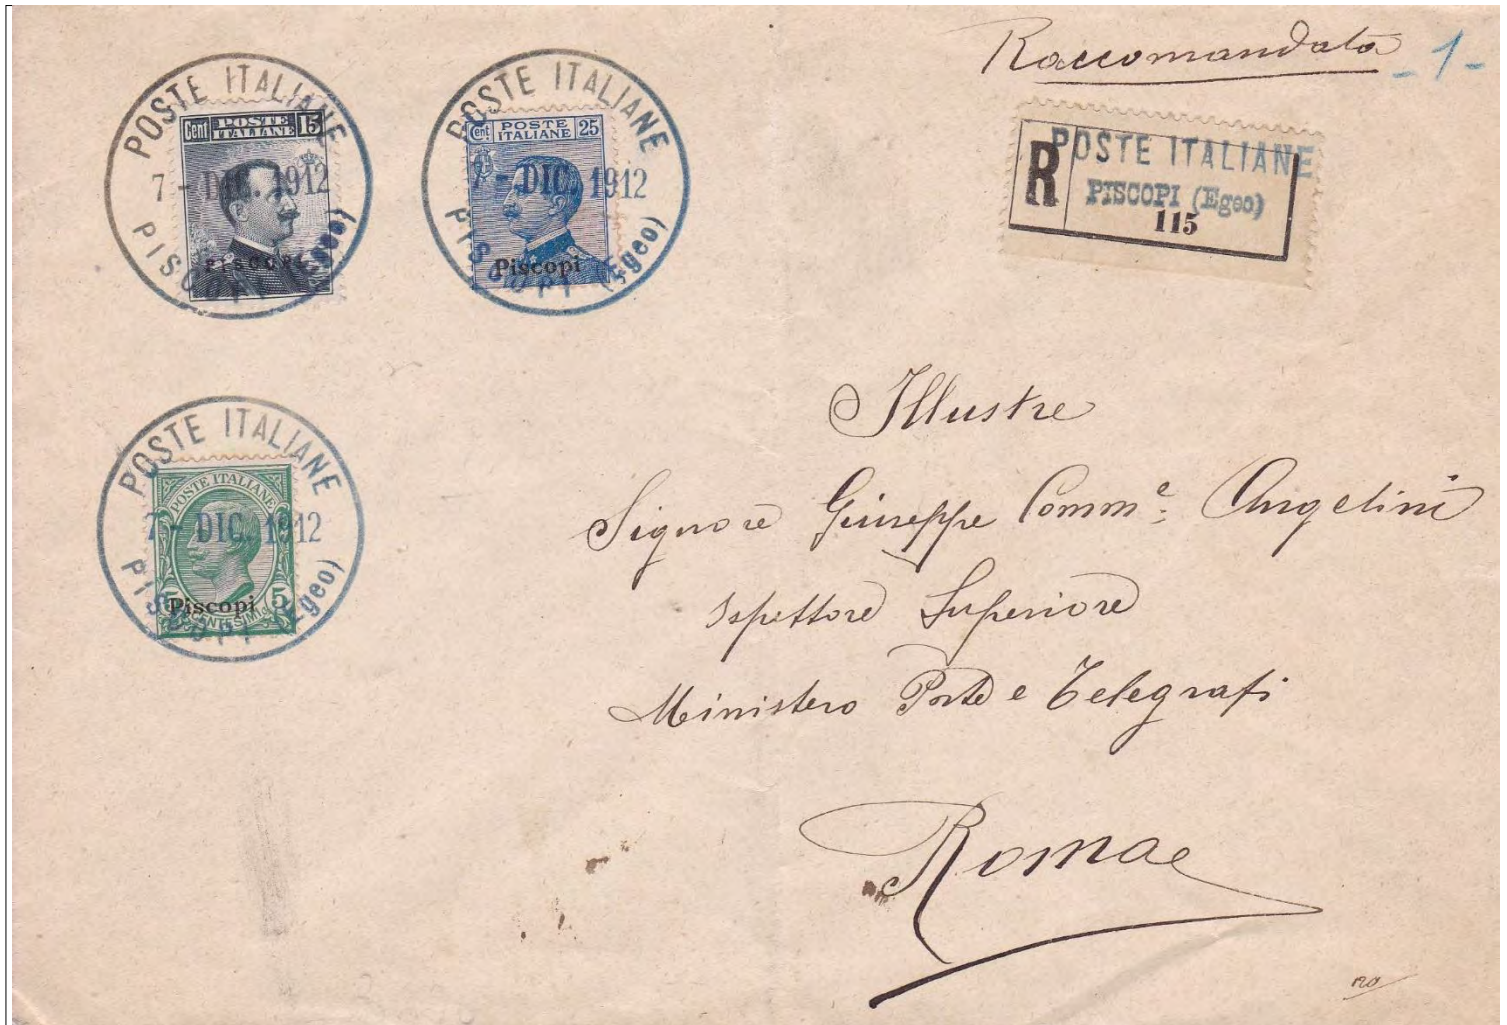 Raccomandata -1-
POSTE ITALIANE
7 - DIC. 1912
PISCOPI (Egeo)
Cent POSTE ITALIANE 15
PISCOPI
POSTE ITALIANE
7 - DIC. 1912
PISCOPI (Egeo)
Cent POSTE ITALIANE 25
Piscopi
R
POSTE ITALIANE
PISCOPI (Egeo)
115
POSTE ITALIANE
7 - DIC. 1912
PISCOPI (Egeo)
POSTE ITALIANE
Piscopi
5 CENTESIMI 5
Illustre
Signore Giuseppe Comm.e Angelini
Ispettore Superiore
Ministero Poste e Telegrafi
Roma